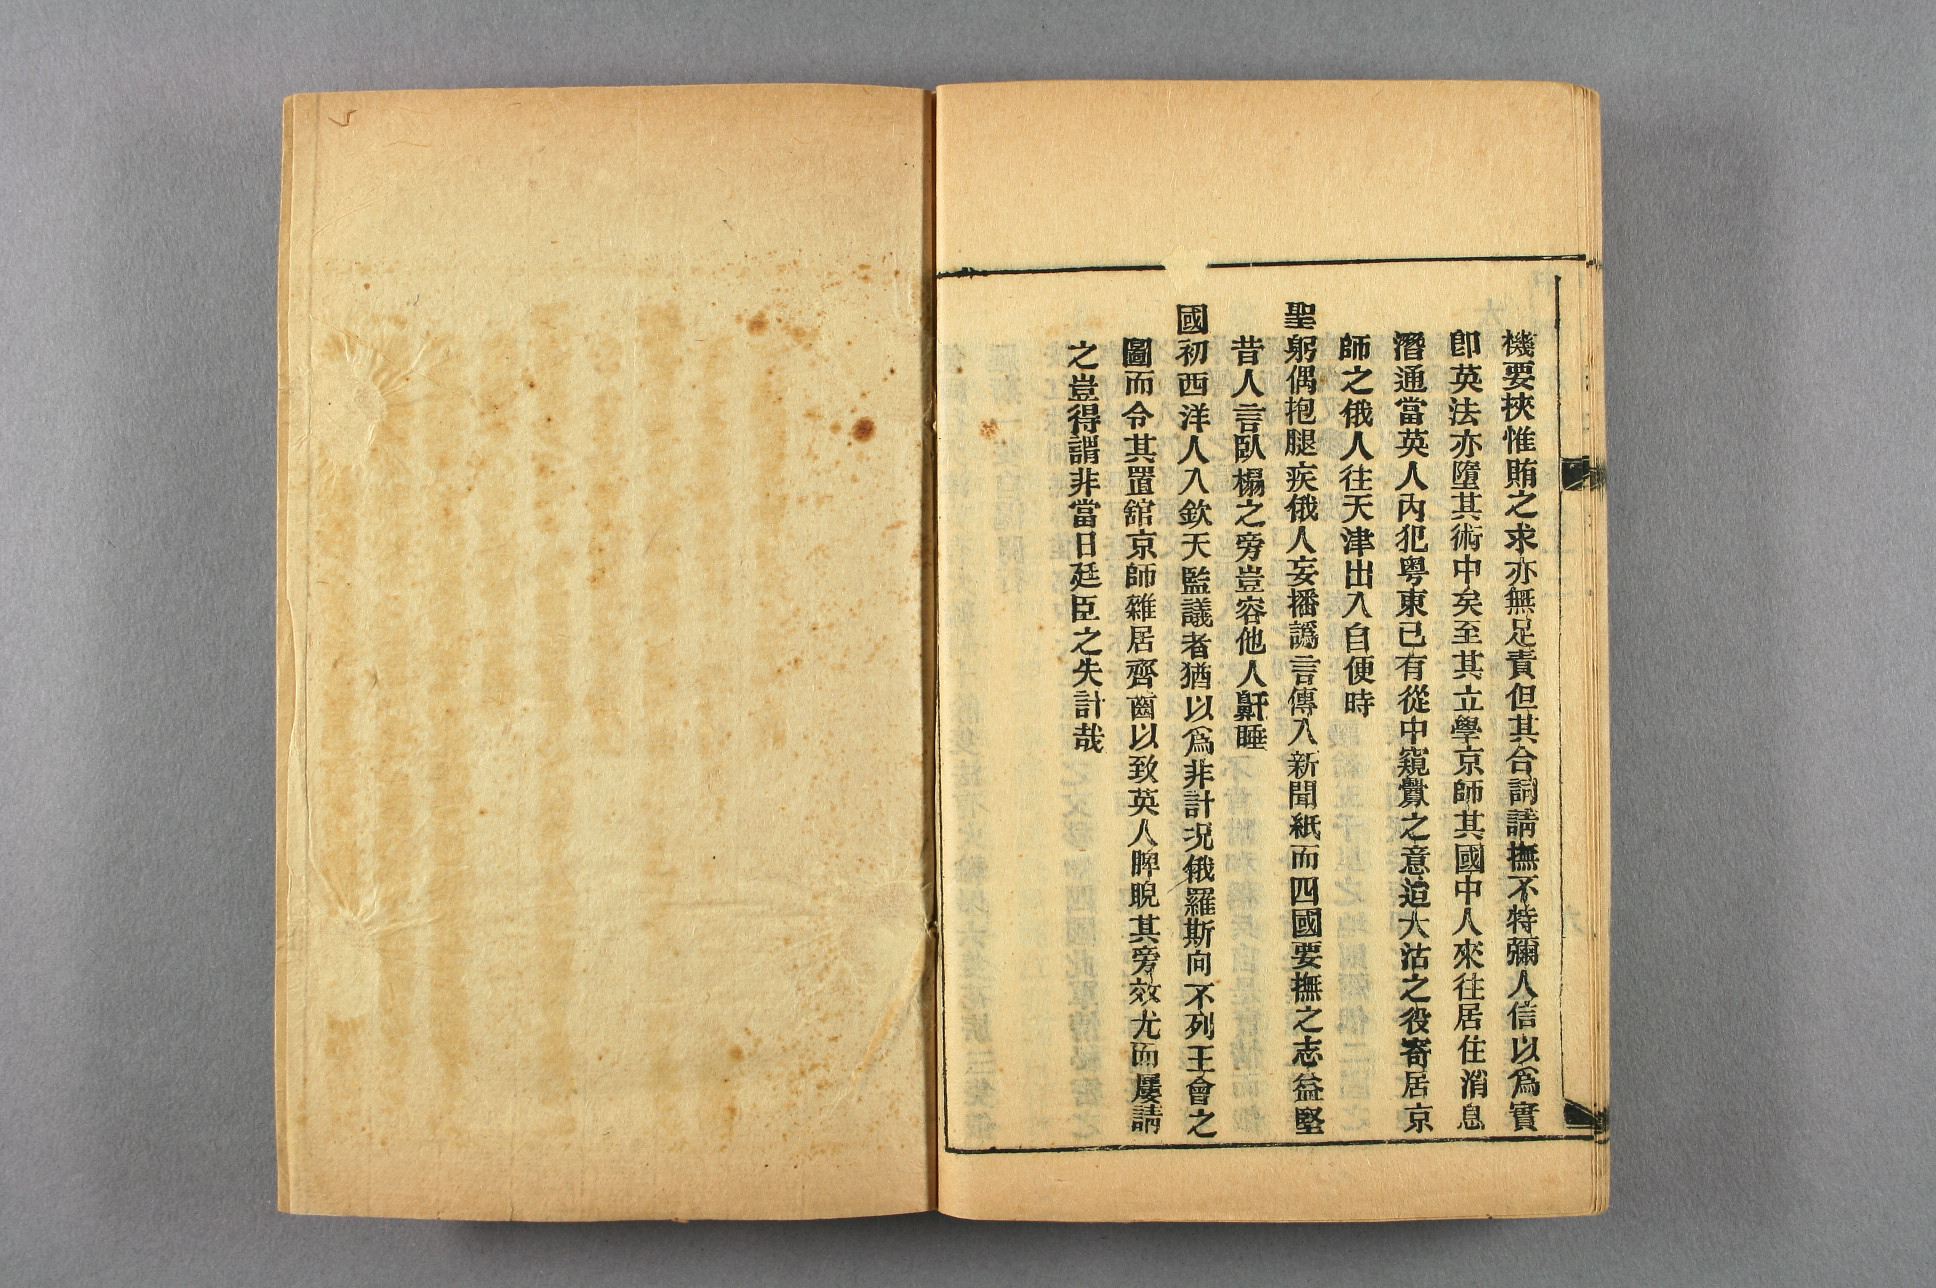 機要挾惟賄之求亦無足責但其合詞請撫不特彌人信以爲實
卽英法亦墮其術中矣至其立學京師其國中人來往居住消息
潛通當英人內犯粤東已有從中窺釁之意迨大沽之役寄居京
師之俄人往天津出入自便時
聖躬偶抱腿疾俄人妄播譌言傳入新聞紙而四國要撫之志益堅
昔人言臥榻之旁豈容他人鼾睡
國初西洋人入欽天監議者猶以爲非計况俄羅斯向不列王會之
圖而令其置舘京師雜居齊齒以致英人睥睨其旁效尤而屡請
之豈得謂非當日廷臣之失計哉